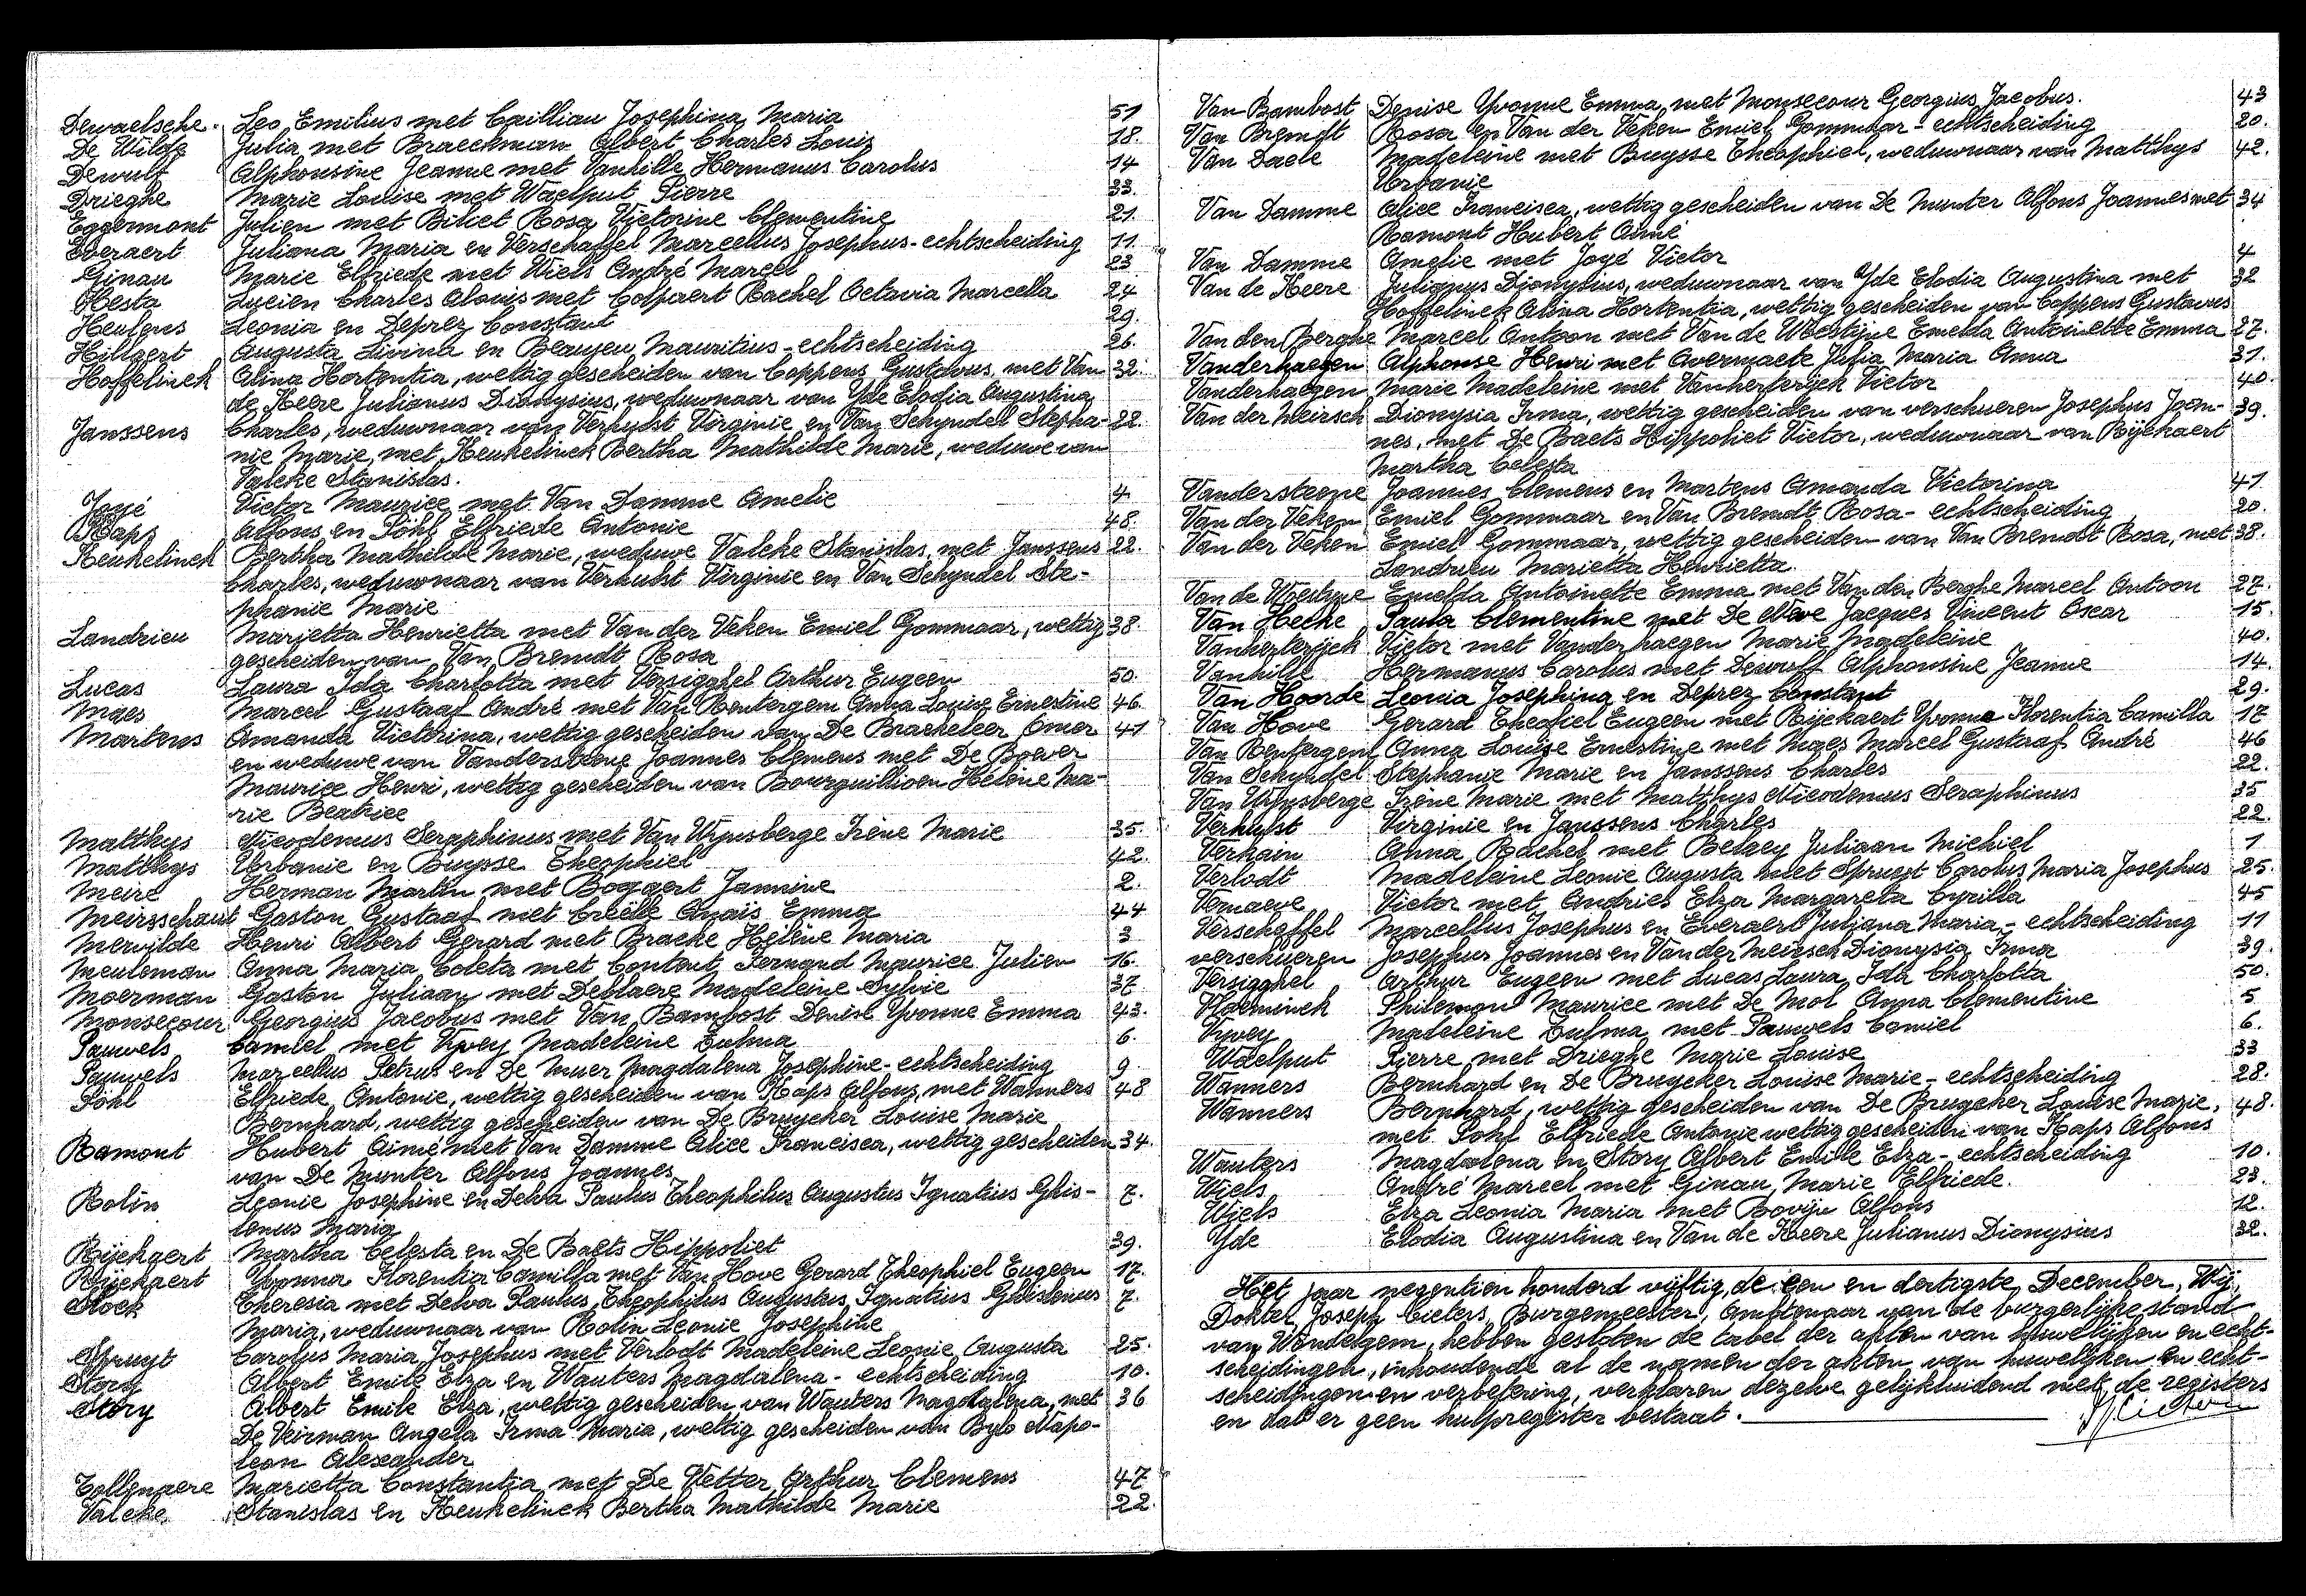 Dewaelsche. Leo Emilius met Cailliau Josephina Maria 51
De Wilde Julia met Braeckman Albert Charles Louis 18.
Dewulf Alphonsine Jeanne met Vanhille Hermanus Carolus 14
Drieghe Marie Louise met Waelput Pierre 33.
Eggermont Julien met Biliet Rosa Victorine Clementine 21.
Everaert Juliana Maria en Verschaffel Marcellus Josephus - echtscheiding 11.
Ginau Marie Elfriede met Wiels André Marcel 23
Hesta Lucien Charles Aloüis met Colpaert Rachel Octavia Marcella 24
Heulens Leonia en Deprez Constant 29.
Hillaert Augusta Livina en Beaujeu Mauritius - echtscheiding 26.
Hoffelinck Alina Hortentia, wettig gescheiden van Coppens Gustavus, met Van 32.
de Keere Julianus Dionysius, weduwnaar van Yde Elodia Augustina
Janssens Charles, weduwnaar van Verhulst Virginie en Van Schyndel Stepha- 22.
nie Marie, met Keukelinck Bertha Mathilde Marie, weduwe van
Valcke Stanislas.
Joyé Victor Maurice met Van Damme Amelie 4
Kaps Alfons en Pöhl Elfriede Antonie 48.
Keukelinck Bertha Mathilde Marie, weduwe Valcke Stanislas, met Janssens 22.
Charles, weduwnaar van Verhulst Virginie en Van Schyndel Ste-
phanie Marie
Landrieu Marietta Henrietta met Van der Veken Emiel Gommaar, wettig 38.
gescheiden van Van Bremdt Rosa
Lucas Laura Ida Charlotta met Versigghel Arthur Eugeen 50.
Maes Marcel Gustaaf André met Van Renterghem Anna Louise Ernestine 46.
Martens Amanda Victorina, wettig gescheiden van De Brackeleer Omer 41
en weduwe van Vandersteene Joannes Clemens met De Boever
Maurice Henri, wettig gescheiden van Bourguillioen Hélène Ma-
rie Beatrice
Matthys Nicodemus Seraphinus met Van Wynsberge Irène Marie 35.
Matthys Urbanie en Buysse Theophiel 42.
Meire Herman Martin met Bogaert Jannine 2.
Meirsschaut Gaston Gustaaf met Creëlle Anaïs Emma 44
Merwilde Henri Albert Gerard met Bracke Hélène Maria 3
Meuleman Anna Maria Coleta met Content Fernand Maurice Julien 16.
Moerman Gaston Juliaan met Deblaere Madeleine Sylvie 37
Monsecour Georgius Jacobus met Van Bambost Denise Yvonne Emma 43.
Pauwels Camiel met Vyvey Madeleine Zulma 6.
Pauwels Marcellus Petrus en De Muer Magdalena Josephine - echtscheiding 9.
Pöhl Elfriede Antonie, wettig gescheiden van Kaps Alfons, met Wanners 48
Bernhard, wettig gescheiden van De Bruycker Louise Marie
Ramont Hubert Aimé met Van Damme Alice Francisca, wettig gescheiden 34.
van De Munter Alfons Joannes
Rolin Leonie Josephine en Delva Paulus Theophilus Augustus Ignatius Ghis- 7.
lenus Maria
Rijckaert Martha Celesta en De Baets Hippoliet 39.
Rijckaert Yvonna Florentia Camilla met Van Hove Gerard Theophiel Eugeen 17.
Slock Theresia met Delva Paulus Theophilus Augustus Ignatius Ghislenus 7.
Maria, weduwnaar van Rolin Leonie Josephine
Spruyt Carolus Maria Josephus met Verlodt Madeleine Leonie Augusta 25.
Story Albert Emile Elza en Wauters Magdalena - echtscheiding 10.
Story Albert Emile Elza, wettig gescheiden van Wauters Magdalena, met 36
De Veirman Angela Irma Maria, wettig gescheiden van Bylo Napo-
leon Alexander
Tollenaere Marietta Constantia met De Vetter Arthur Clemens 47
Valcke Stanislas en Keukelinck Bertha Mathilde Marie 22.
Van Bambost Denise Yvonne Emma met Monsecour Georgius Jacobus. 43
Van Bremdt Rosa en Van der Veken Emiel Gommaar - echtscheiding 20.
Van Daele Madeleine met Buysse Theophiel, weduwnaar van Matthys 42.
Urbanie
Van Damme Alice Francisca, wettig gescheiden van De Munter Alfons Joannes met 34
Ramont Hubert Aimé
Van Damme Amelie met Joyé Victor 4
Van de Keere Julianus Dionysius, weduwnaar van Yde Elodia Augustina met 32
Hoffelinck Alina Hortentia, wettig gescheiden van Coppens Gustavus
Van den Berghe Marcel Antoon met Van de Woestijne Emelda Antoinette Emma 27.
Vanderhaegen Alphonse Henri met Overmaete Julia Maria Anna 31.
Vanderhaegen Marie Madeleine met Vanherteryck Victor 40.
Van der Meirsch Dionysia Irma, wettig gescheiden van verschueren Josephus Joan- 39.
nes, met De Baets Hippoliet Victor, weduwnaar van Rijckaert
Martha Celesta
Vandersteene Joannes Clemens en Martens Amanda Victorina 41.
Van der Veken Emiel Gommaar en Van Bremdt Rosa - echtscheiding 20.
Van der Veken Emiel Gommaar, wettig gescheiden van Van Bremdt Rosa, met 38.
Landrieu Marietta Henrietta.
Van de Woestyne Emelda Antoinette Emma met Van den Berghe Marcel Antoon 27.
Van Hecke Paula Clementine met De Neve Jacques Vincent Oscar 15.
Vanherteryck Victor met Vanderhaegen Marie Madeleine 40.
Vanhille Hermanus Carolus met Dewulf Alphonsine Jeanne 14.
Van Hoorde Leonia Josephina en Deprez Constant 29.
Van Hove Gerard Theofiel Eugeen met Rijckaert Yvonna Florentia Camilla 17
Van Rentergem Anna Louise Ernestine met Maes Marcel Gustaaf André 46
Van Schyndel Stephanie Marie en Janssens Charles 22.
Van Wynsberge Irène Marie met Matthys Nicodemus Seraphinus 35
Verhulst Virginie en Janssens Charles 22.
Verkain Anna Rachel met Belaey Juliaan Michiel 1
Verlodt Madeleine Leonie Augusta met Spruyt Carolus Maria Josephus 25.
Vernaeve Victor met Andries Elza Margareta Cyrilla 45
Verschaffel Marcellus Josephus en Everaert Juliana Maria - echtscheiding 11
verschueren Josephus Joannes en Van der Meirsch Dionysia Irma 39.
Versigghel Arthur Eugeen met Lucas Laura Ida Charlotta 50.
Vlaeminck Philemon Maurice met De Mol Anna Clementine 5
Vyvey Madeleine Zulma met Pauwels Camiel 6.
Waelput Pierre met Drieghe Marie Louise 33
Wanners Bernhard en De Bruycker Louise Marie - echtscheiding 28.
Wanners Bernhard, wettig gescheiden van De Bruycker Louise Marie, 48.
met Pöhl Elfriede Antonie wettig gescheiden van Kaps Alfons
Wauters Magdalena en Story Albert Emile Elza - echtscheiding 10.
Wiels André Marcel met Ginau Marie Elfriede. 23.
Wiels Elza Leonia Maria met Bovijn Alfons 12.
Yde Elodia Augustina en Van de Keere Julianus Dionysius 32.
Het jaar negentien honderd vijftig, de een en dertigste December, Wij,
Dokter Joseph Cieters, Burgemeester, Ambtenaar van de burgerlijke stand
van Wondelgem, hebben gesloten de tabel der akten van huwelijken en echt-
scheidingen, inhoudende al de namen der akten van huwelijken en echt-
scheidingen en verbetering, verklaren dezelve gelijkluidend met de registers
en dat er geen hulpregister bestaat.